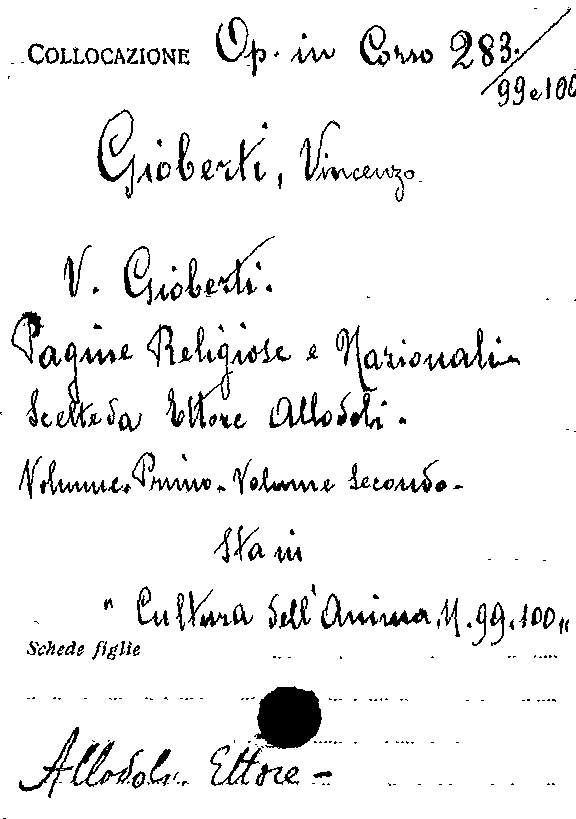 COLLOCAZIONE Op. in Corso 283.
99 e 100
Gioberti, Vincenzo.
V. Gioberti.
Pagine Religiose e Nazionali -
Scelte da Ettore Allodoli.
Volume Primo. Volume Secondo.
Sta in
"Cultura dell'Anima N. 99. 100"
Schede figlie
Allodoli Ettore -